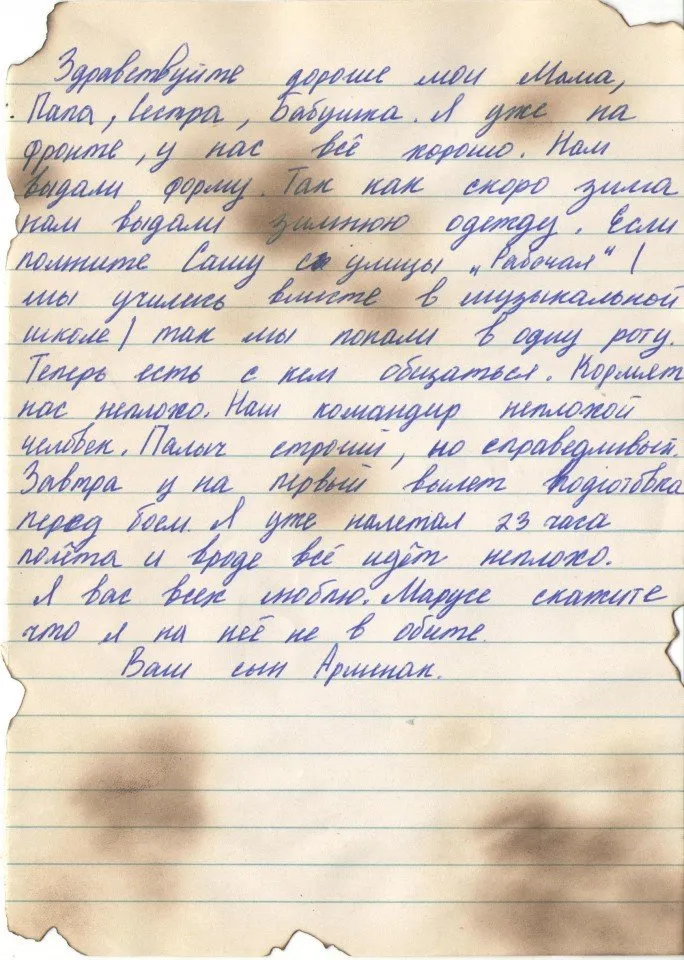 Здравствуйте дорогие мои Мама,
Папа, Сестра, Бабушка. Я уже на
фронте, у нас всё хорошо. Нам
выдали форму. Так как скоро зима
нам выдали зимнюю одежду. Если
помните Сашу с улицы „Рабочая" /
мы учились вместе в музыкальной
школе / так мы попали в одну роту.
Теперь есть с кем общаться. Кормят
нас неплохо. Наш командир неплохой
человек. Палыч строгий, но справедливый.
Завтра у на первый вылет подготовка
перед боем. Я уже налетал 23 часа
полёта и вроде всё идёт неплохо.
Я вас всех люблю. Марусе скажите
что я на неё не в обите.
Ваш сын Арменак.